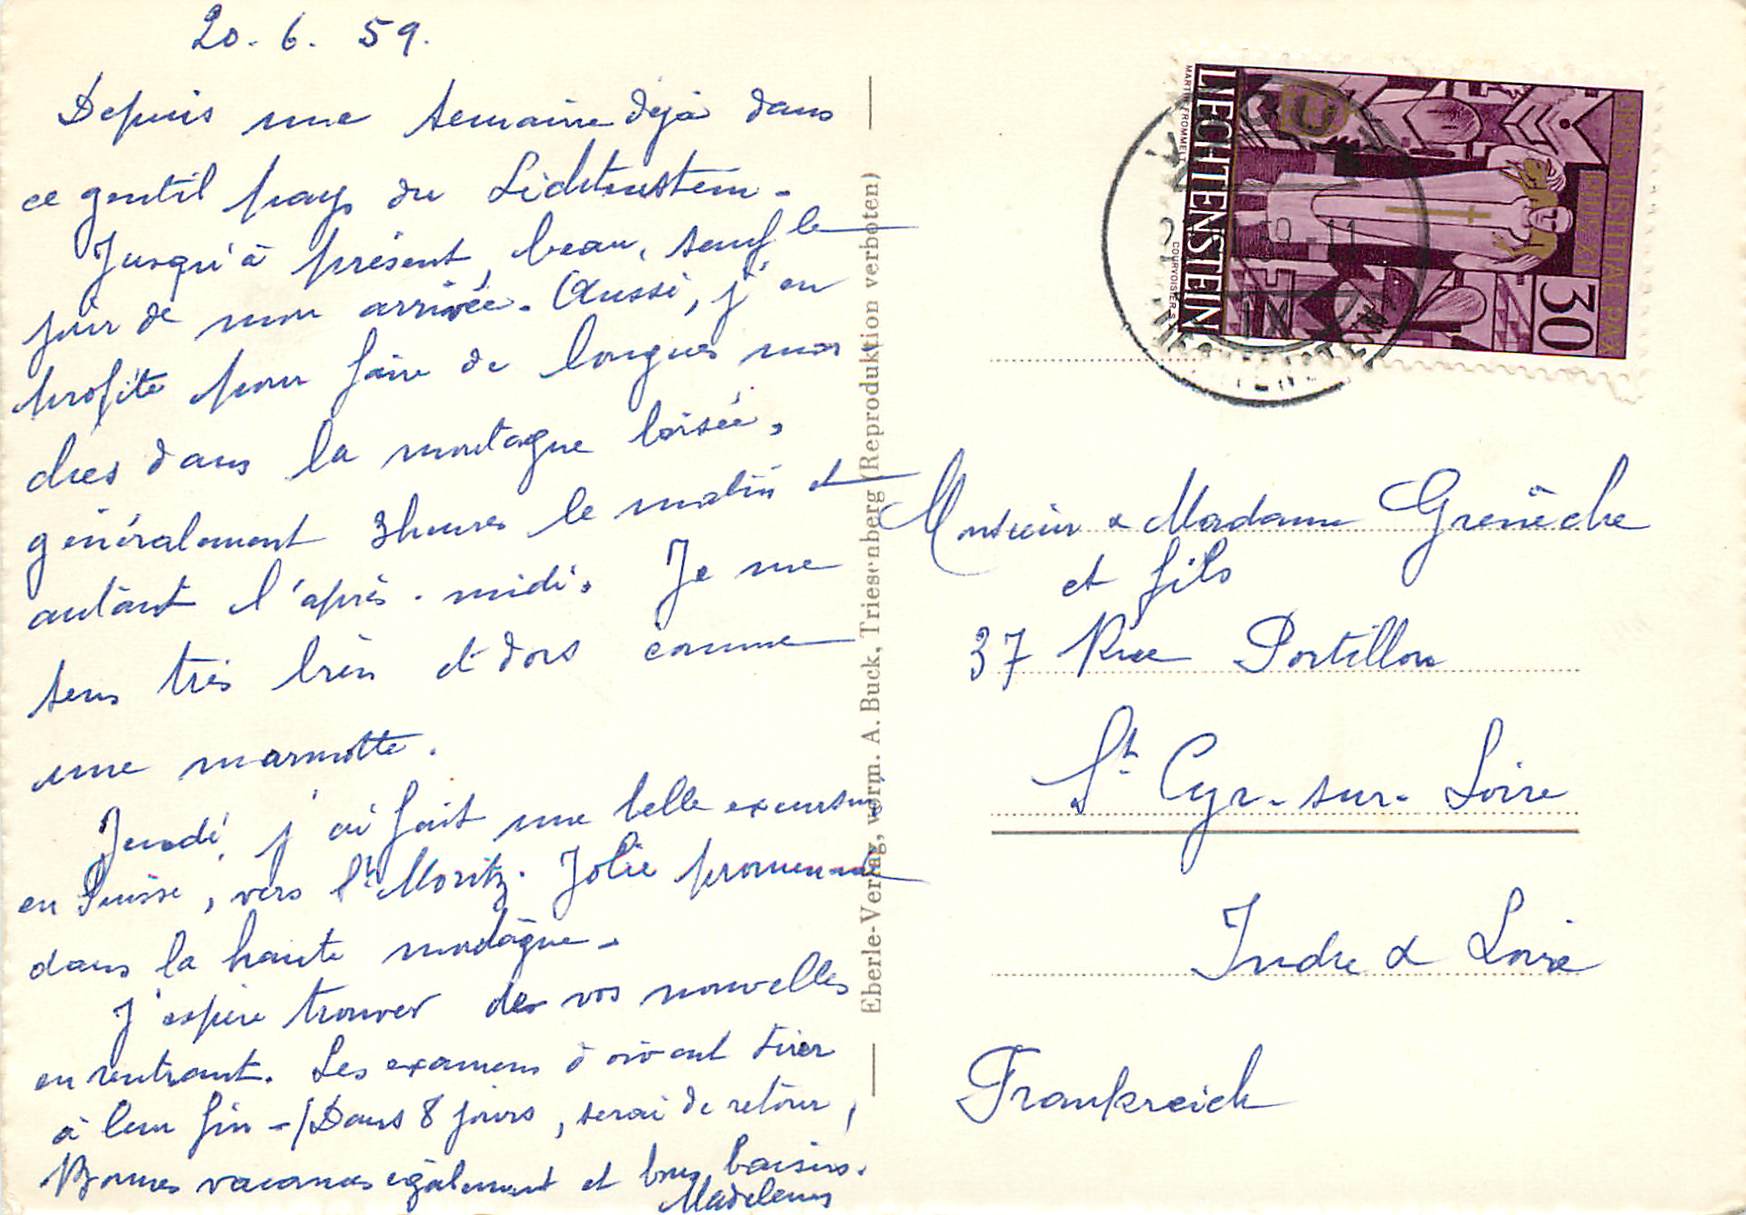 20. 6. 59.
Depuis une semaine déjà dans
ce gentil pays du Lichtenstein -
Jusqu'à présent, beau, sauf le
jour de mon arrivée. Aussi, j'en
profite pour faire de longues mar
ches dans la montagne boisée,
généralement 3 heures le matin et
autant l'après-midi. Je me
sens très bien et dors comme
une marmotte.
Jeudi, j'ai fait une belle excursion
en Suisse, vers St Moritz. Jolie promenade
dans la haute montagne -
J'espère trouver de vos nouvelles
en rentrant. Les examens doivent tirer
à leur fin - Dans 8 jours, serai de retour,
Bonnes vacances également et bons baisers.
Madeleine
Eberle-Verlag, vorm. A. Buck, Triesenberg (Reproduktion verboten)
LIECHTENSTEIN
MARTIN FROMMELT
COURVOISIER S.
OPUS JUSTITIAE PAX
PIUS XII
30
59.11
LIECHTENSTEIN
Monsieur & Madame Grênèche
et fils
37 Rue Portillon
St Cyr-sur-Loire
Indre & Loire
Frankreich